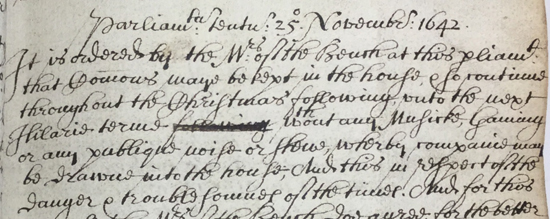 Parliam:tu tentu: 25.o Novembr: 1642.
It is ordered by the Mrs of the Bench at this pliam:t
that Comons maye be kept in the house & so continue
throughout the Christmas following, unto the next
Hilarie terme following wthout any Musicke, Gaming
or any publique noise or shewe, wherby companie may
be drawne into the house. And this in respect of the
danger & troublesomnes of the times. And for this
the Mrs of the Bench doe agree by the better